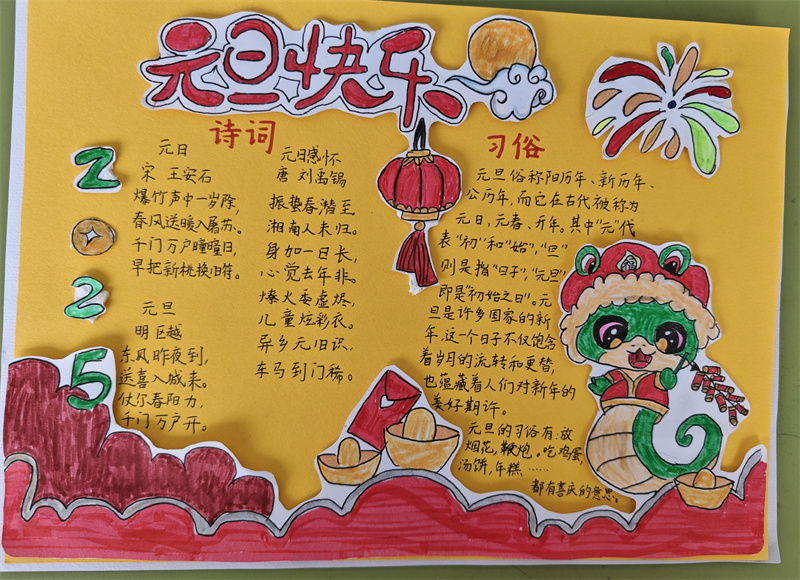 元旦快乐
诗词
元日
宋 王安石
爆竹声中一岁除,
春风送暖入屠苏。
千门万户曈曈日,
早把新桃换旧符。
元旦
明 区越
东风昨夜到,
送喜入城来。
仗尔春阳力,
千门万户开。
元日感怀
唐 刘禹锡
振蛰春潜至
湘南人未归。
身加一日长,
心觉去年非。
燎火委虚烬,
儿童炫彩衣。
异乡无旧识,
车马到门稀。
2
2
5
习俗
元旦俗称阳历年、新历年、
公历年,而它在古代被称为
元日,元春、开年。其中“元”代
表“初”和“始”,“旦”
则是指“日子”,“元旦”
即是“初始之日”。元
旦是许多国家的新
年,这一个日子不仅饱含
着岁月的流转和更替,
也蕴藏着人们对新年的
美好期许。
元旦的习俗有:放
烟花,鞭炮。吃鸡蛋,
汤饼,年糕……
都有喜庆的意思。